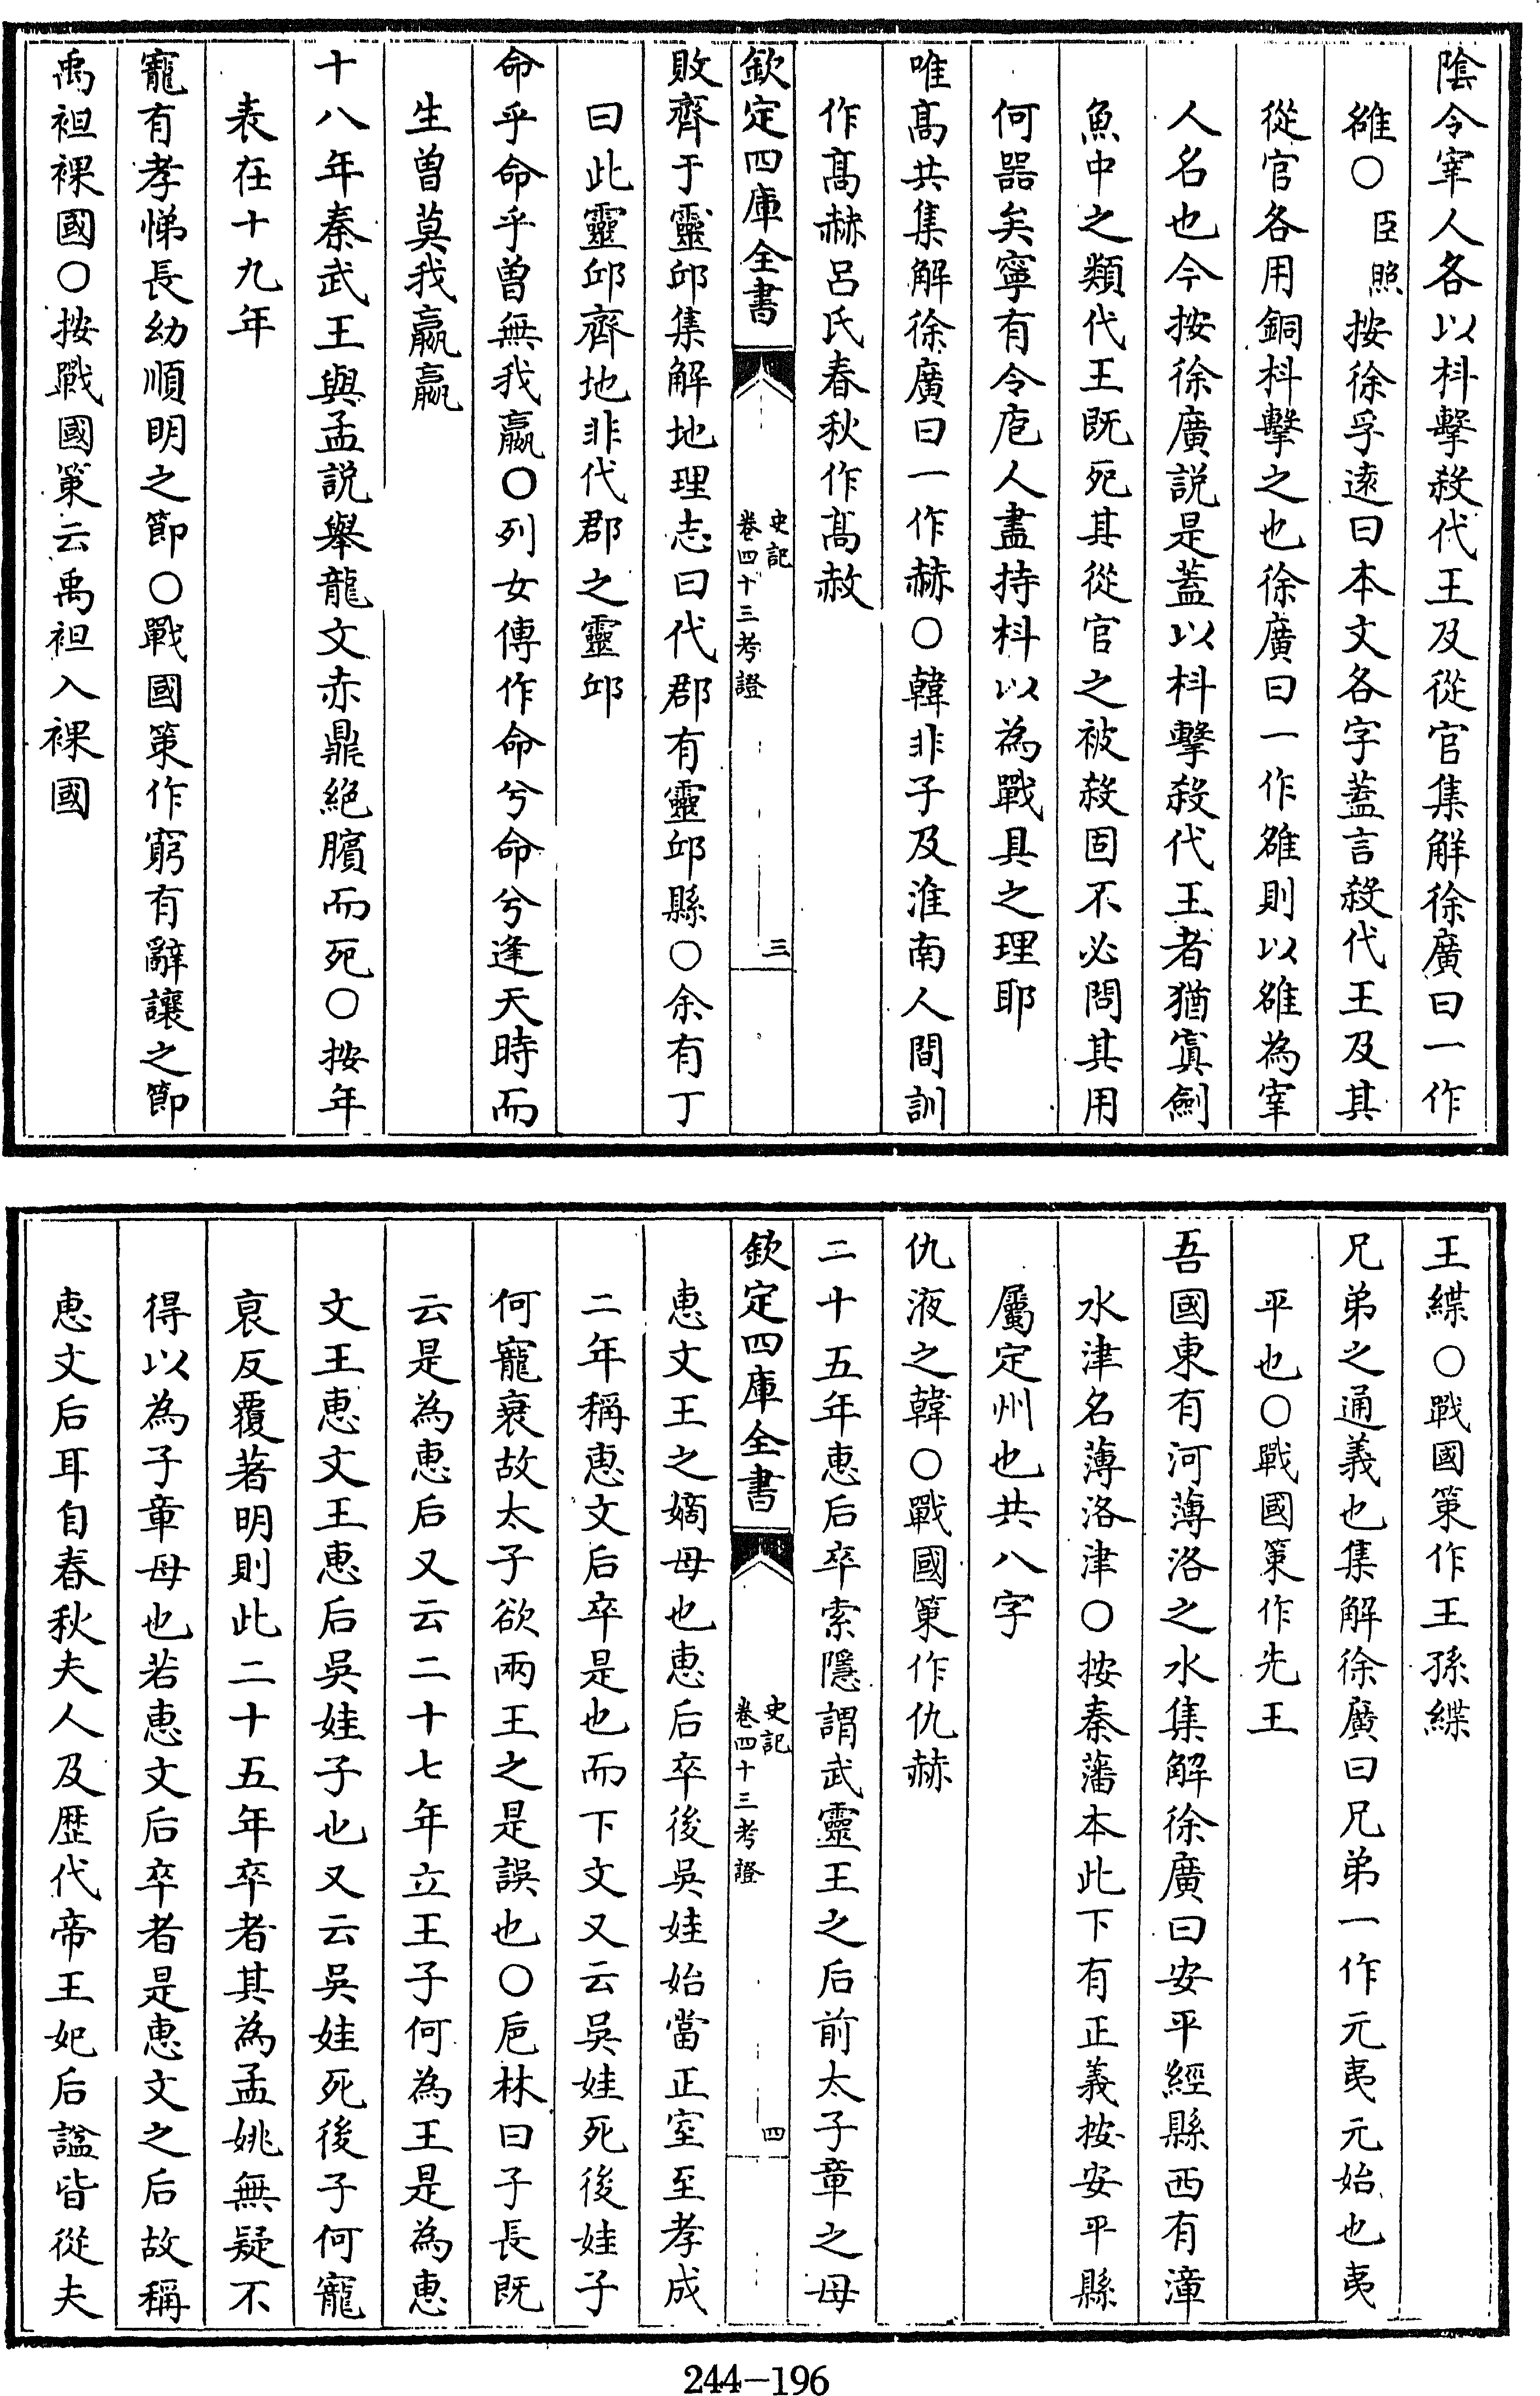 陰令宰人各以枓擊殺代王及從官集解徐廣曰一作
雒〇臣照按徐孚遠曰本文各字蓋言殺代王及其
從官各用銅枓擊之也徐廣曰一作雒則以雒為宰
人名也今按徐廣説是蓋以枓擊殺代王者猶寘劍
魚中之類代王既死其從官之被殺固不必問其用
何器矣寧有令庖人盡持枓以為戰具之理耶
唯髙共集解徐廣曰一作赫〇韓非子及淮南人間訓
作髙赫呂氏春秋作髙赦
欽定四庫全書
史記
卷四十三考證
三
敗齊于靈邱集解地理志曰代郡有靈邱縣〇余有丁
曰此靈邱齊地非代郡之靈邱
命乎命乎曾無我嬴〇列女傳作命兮命兮逢天時而
生曾莫我嬴嬴
十八年秦武王與孟説舉龍文赤鼎絕臏而死〇按年
表在十九年
寵有孝悌長幼順明之節〇戰國策作窮有辭讓之節
禹袒裸國〇按戰國策云禹袒入裸國
王緤〇戰國策作王孫緤
兄弟之通義也集解徐廣曰兄弟一作元夷元始也夷
平也〇戰國策作先王
吾國東有河薄洛之水集解徐廣曰安平經縣西有漳
水津名薄洛津〇按秦藩本此下有正義按安平縣
屬定州也共八字
仇液之韓〇戰國策作仇赫
二十五年惠后卒索隱謂武靈王之后前太子章之母
欽定四庫全書
史記
卷四十三考證
四
惠文王之嫡母也惠后卒後吳娃始當正室至孝成
二年稱惠文后卒是也而下文又云吳娃死後娃子
何寵衰故太子欲兩王之是誤也〇巵林曰子長既
云是為惠后又云二十七年立王子何為王是為惠
文王惠文王惠后吳娃子也又云吳娃死後子何寵
哀反覆著明則此二十五年卒者其為孟姚無疑不
得以為子章母也若惠文后卒者是惠文之后故稱
惠文后耳自春秋夫人及歴代帝王妃后諡皆從夫
244-196